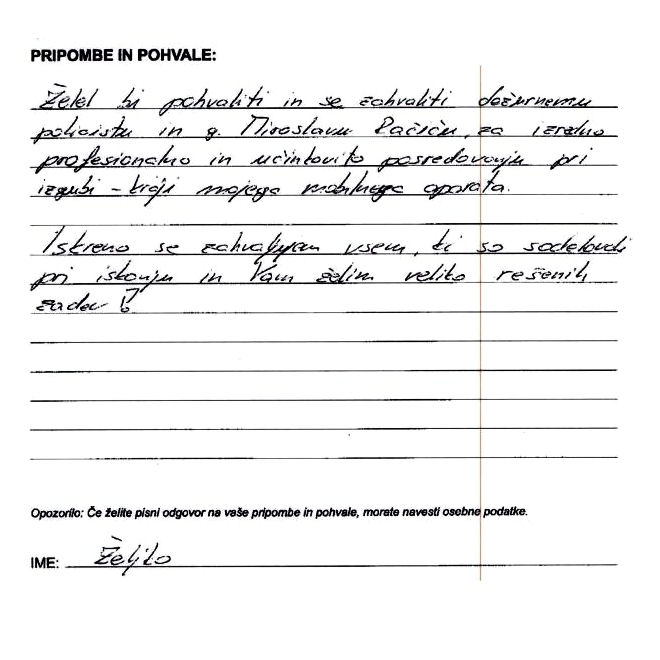 PRIPOMBE IN POHVALE:
Želel bi pohvaliti in se zahvaliti dežurnemu
policistu in g. Miroslavu Račiču, za izredno
profesionalno in učinkovito posredovanju pri
izgubi - kraji mojega mobilnega aparata.
Iskreno se zahvaljujem vsem, ki so sodelovali
pri iskanju in Vam želim veliko rešenih
zadev!
Opozorilo: Če želite pisni odgovor na vaše pripombe in pohvale, morate navesti osebne podatke.
IME: Željko